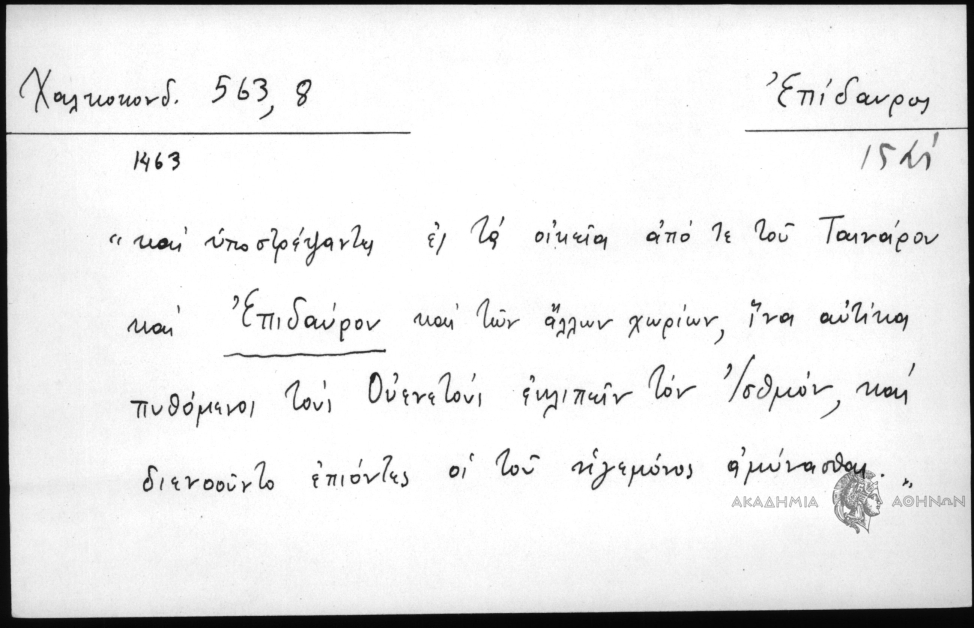 Χαλκοκονδ. 563,8
Ἐπίδαυρος
1463
"καί ὑποστρέψαντες ἐς τά οἰκεῖα ἀπό τε τοῦ Ταινάρου
καί Ἐπιδαύρου καί τῶν ἄλλων χωρίων, ἵνα αὐτίκα
πυθόμενοι τούς Οὐενετούς ἐκλιπεῖν τόν Ἰσθμόν, καί
διενοοῦντο ἐπιόντες οἱ τοῦ ἡγεμόνος ἀμύνασθαι."
ΑΚΑΔΗΜΙΑ ΑΘΗΝΩΝ